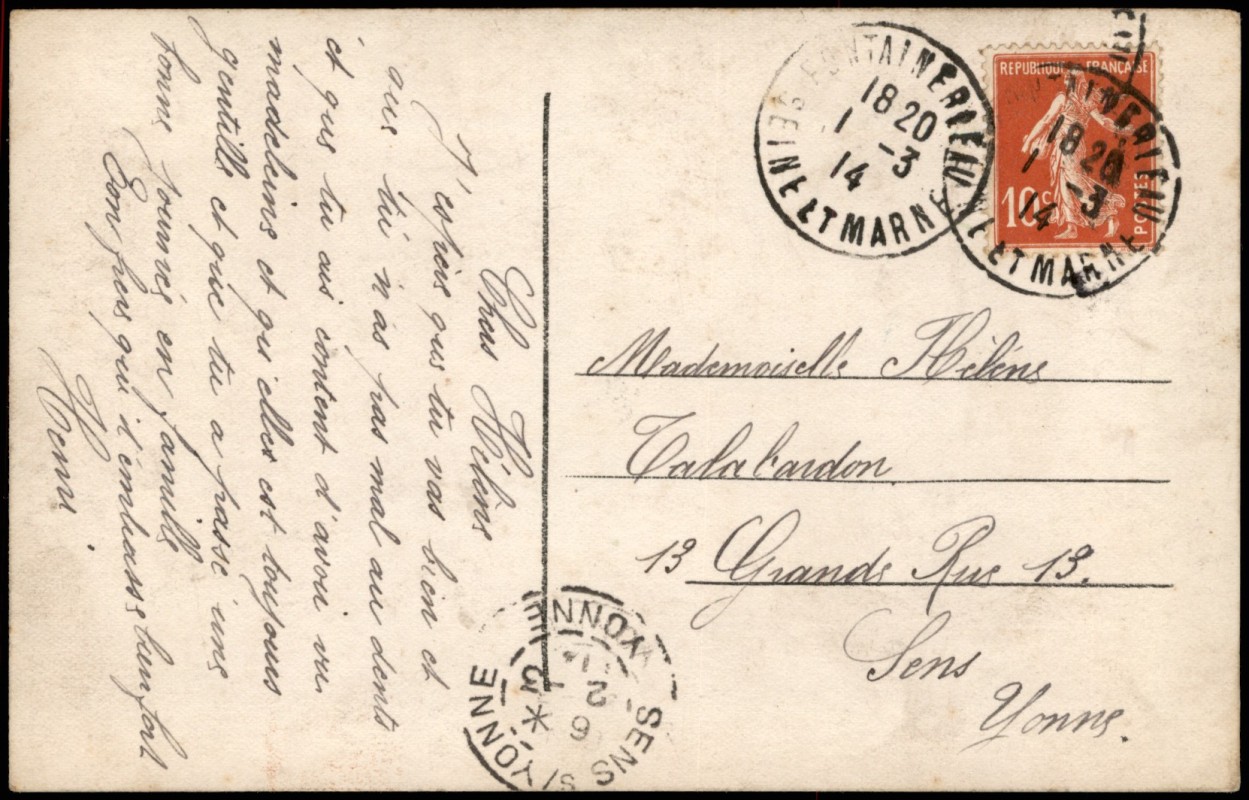 Chere Hélène
J'espère que tu vas bien et
que tu n'as pas mal au dents
et que tu ais content d'avoir vu
madeleine et qu'elles est toujours
gentille et que tu a passé une
bonne journée en famille
Ton frère qui t'embrasse bien fort
Henri
FONTAINEBLEAU
18 20
1 -3
14
SEINE ET MARNE
REPUBLIQUE FRANÇAISE
10c
POSTES
18 20
1 -3
14
ET MARNE
Mademoiselle Hélène
Talabardon
13 Grande Rue 13.
Sens
Yonne.
SENS S/YONNE
YONNE
6
2 -3